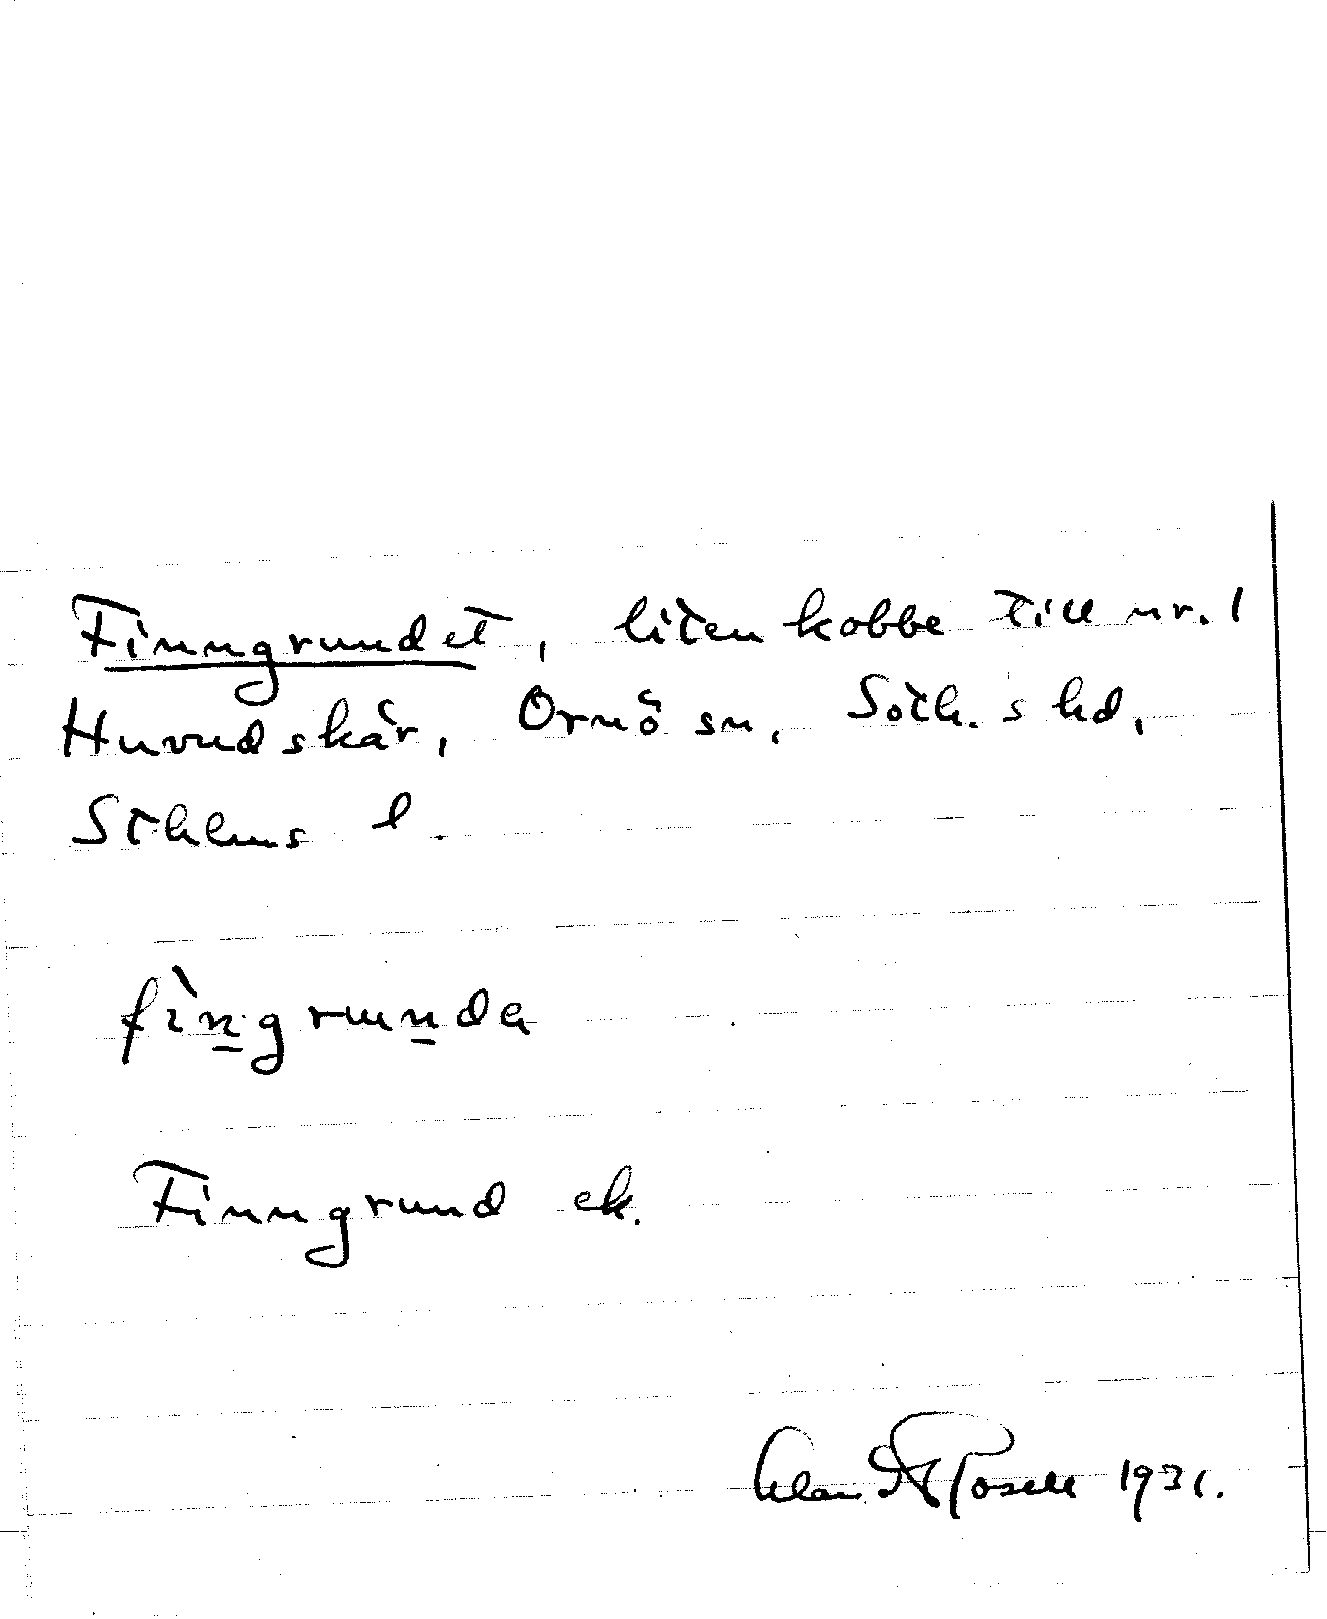 Finngrundet, liten kobbe till nr. 1
Huvudskär, Ornö sn, Soth.s hd,
Sthlms l.
fìngrunda
Finngrund ek.
1931.